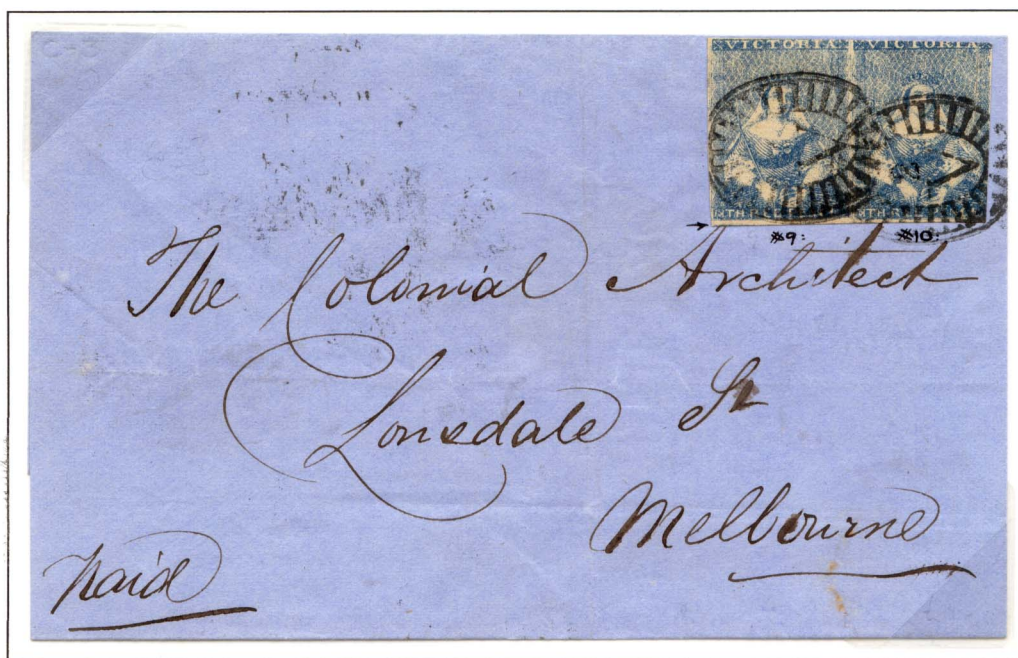 VICTORIA VICTORIA
#9: #10:
The Colonial Architect
Lonsdale St
Melbourne
Paid